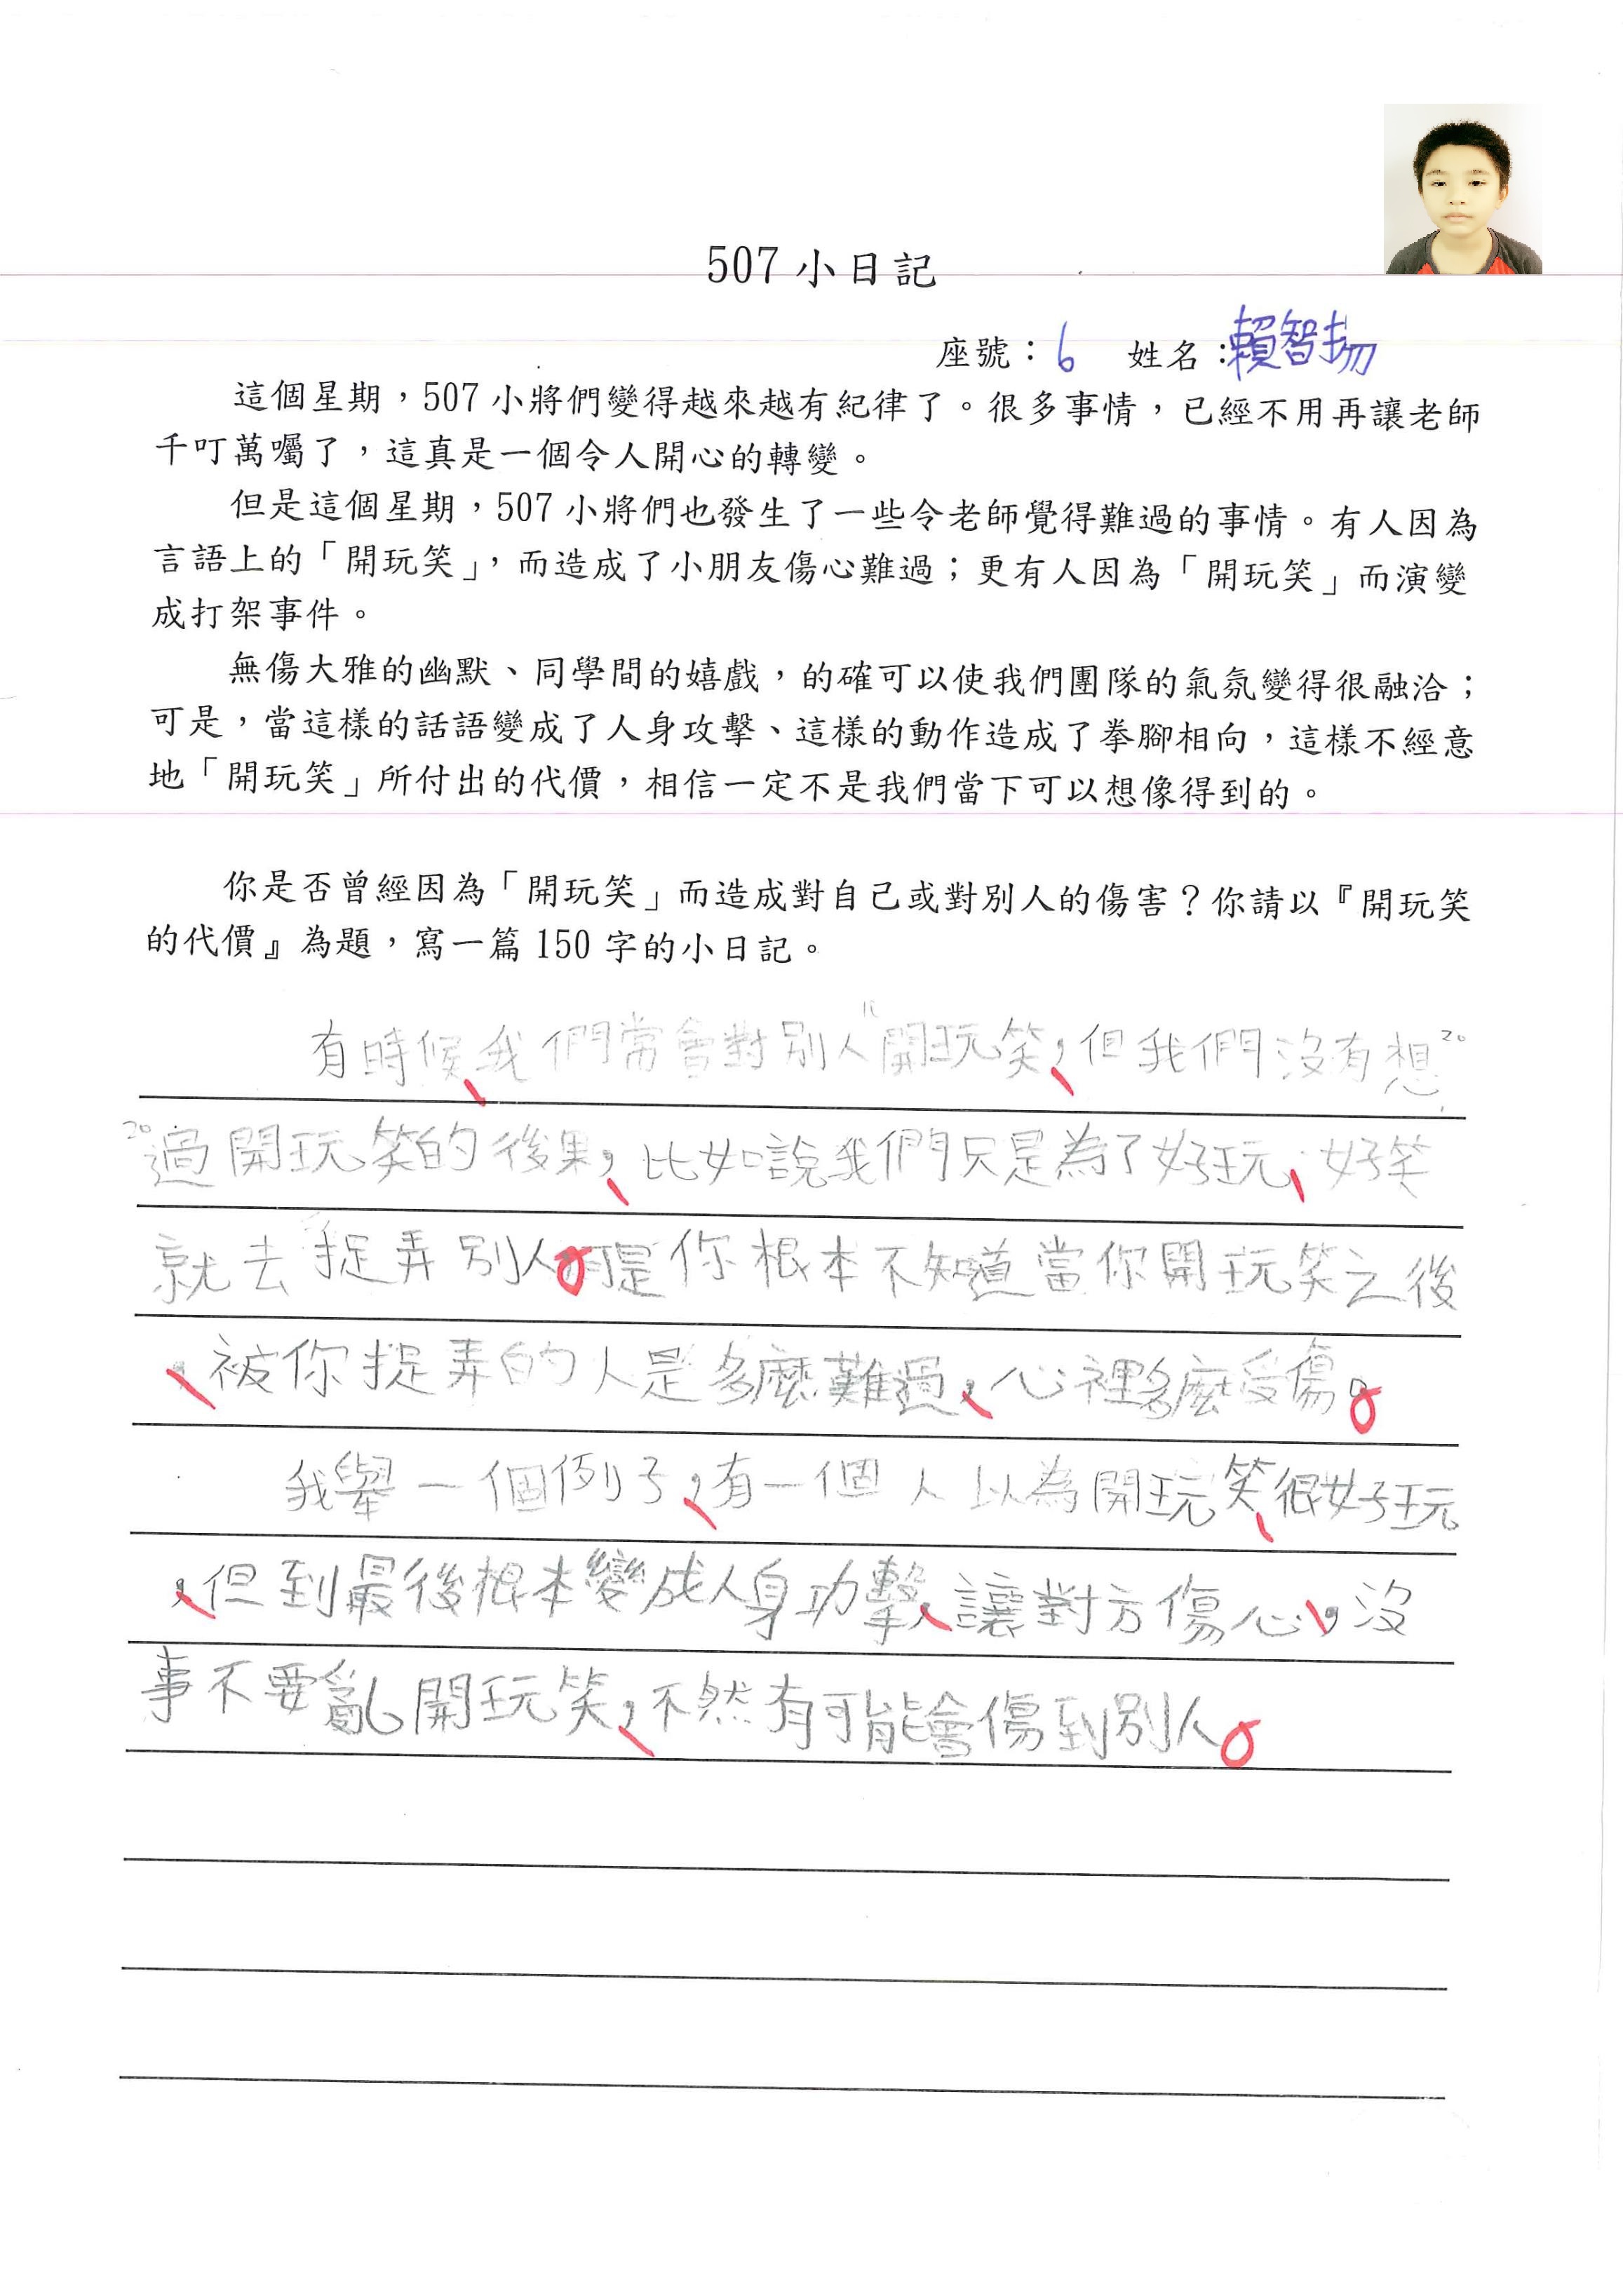 507 小日記
座號：6 姓名：賴智扬
這個星期，507 小將們變得越來越有紀律了。很多事情，已經不用再讓老師
千叮萬囑了，這真是一個令人開心的轉變。
但是這個星期，507 小將們也發生了一些令老師覺得難過的事情。有人因為
言語上的「開玩笑」，而造成了小朋友傷心難過；更有人因為「開玩笑」而演變
成打架事件。
無傷大雅的幽默、同學間的嬉戲，的確可以使我們團隊的氣氛變得很融洽；
可是，當這樣的話語變成了人身攻擊、這樣的動作造成了拳腳相向，這樣不經意
地「開玩笑」所付出的代價，相信一定不是我們當下可以想像得到的。
你是否曾經因為「開玩笑」而造成對自己或對別人的傷害？你請以『開玩笑
的代價』為題，寫一篇 150 字的小日記。
有時候、我們常會對別人開玩笑，但我們沒有想 20
20 過開玩笑的後果，比如說我們只是為了好玩、好笑
就去捉弄別人。可是你根本不知道當你開玩笑之後
，被你捉弄的人是多麼難過，心裡多麼受傷。
我舉一個例子，有一個人以為開玩笑、很好玩
，但到最後根本變成人身功擊，讓對方傷心，沒
事不要亂開玩笑，不然有可能會傷到別人。